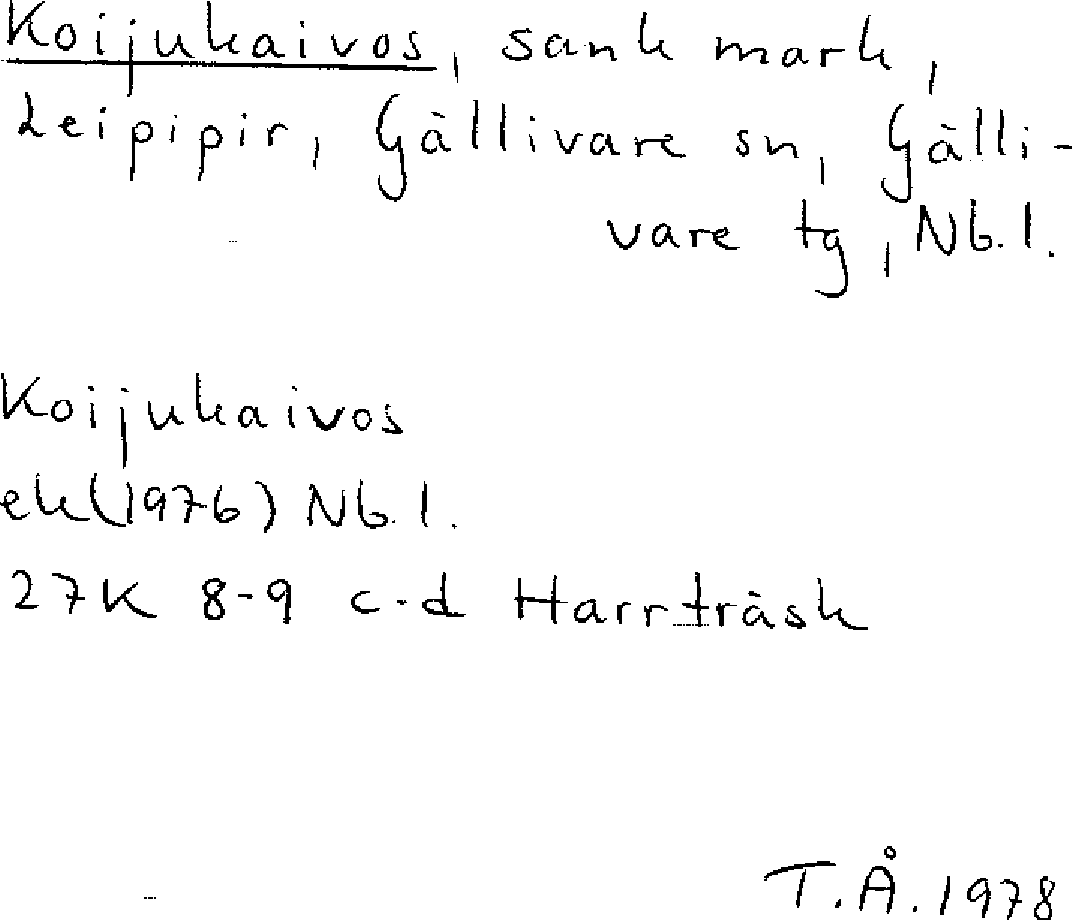 Koijukaivos, sank mark,
Leipipir, Gällivare sn, Gälli-
vare tg, Nb. l.
Koijukaivos
ek (1976) Nb. l.
27K 8-9 c-d Harrträsk
T.Å. 1978